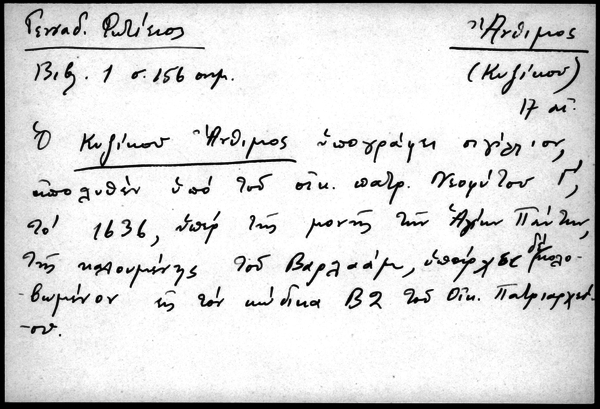 Γενναδ. Φωτίειος
Ἄνθιμος
Βιβ. 1 σ. 156 σημ.
(Κυζίκου)
17 αἰ.
Ὁ Κυζίκου Ἄνθιμος ὑπογράφει σιγίλλιον,
ἀπολυθὲν ὑπὸ τοῦ οἰκ. πατρ. Νεοφύτου Γ',
τὸ 1636, ὑπὲρ τῆς μονῆς τῶν Ἁγίων Πάντων,
τῆς καλουμένης τοῦ Βαρλαάμ, ὑπάρχει δὲ κολο-
βωμένον εἰς τὸν κώδικα Β2 τοῦ Οἰκ. Πατριαρχεί-
ου.